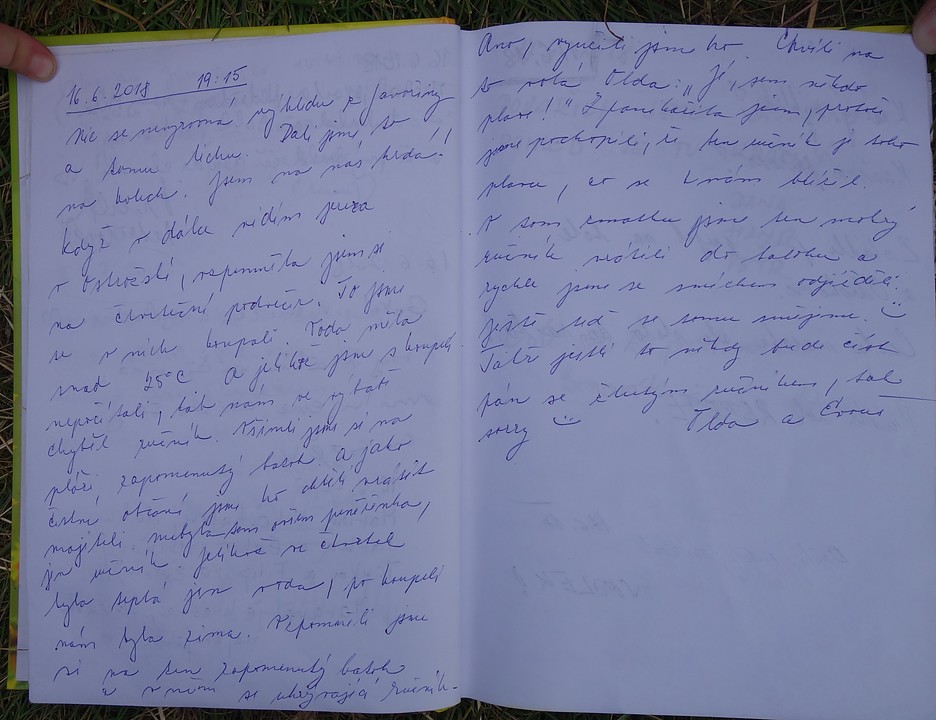 16.6.2018 19:15
Nic se nevyrovná výhledu z Javořiny
a tomu tichu. Dali jsme to
na kolech. Jsem na nás hrdá!
Když v dálce vidím jezera
v Ostrožské, vzpomněla jsem si
na čtvrteční podvečer. To jsme
se v nich koupali. Voda měla
snad 25°C. A jelikož jsme s koupelí
nepočítali, tak nám ve výbavě
chyběl ručník. Všimli jsme si na
pláži, zapomenutý batoh. A jako
čestní občané jsme ho chtěli vrátit
majiteli. Nebyla tam ovšem peněženka,
jen ručník. Jelikož ve čtvrtek
byla teplá jen voda, po koupeli
nám byla zima. Vzpomněli jsme
si na ten zapomenutý batoh
a v něm se ukrývající ručník.
Ano, využili jsme ho. Chvíli na
to volá Olda: "Jé, sem někdo
plave!" Zpanikařila jsem, protože
jsme pochopili, že ten ručník je toho
plavce, co se k nám blížil.
V tom zmatku jsme ten mokrý
ručník vrátili do batohu a
rychle jsme se smíchem odjížděli.
Ještě teď se tomu smějeme. :)
Takže jestli to někdy bude číst
pán se žlutým ručníkem, tak
sorry :) Olda a